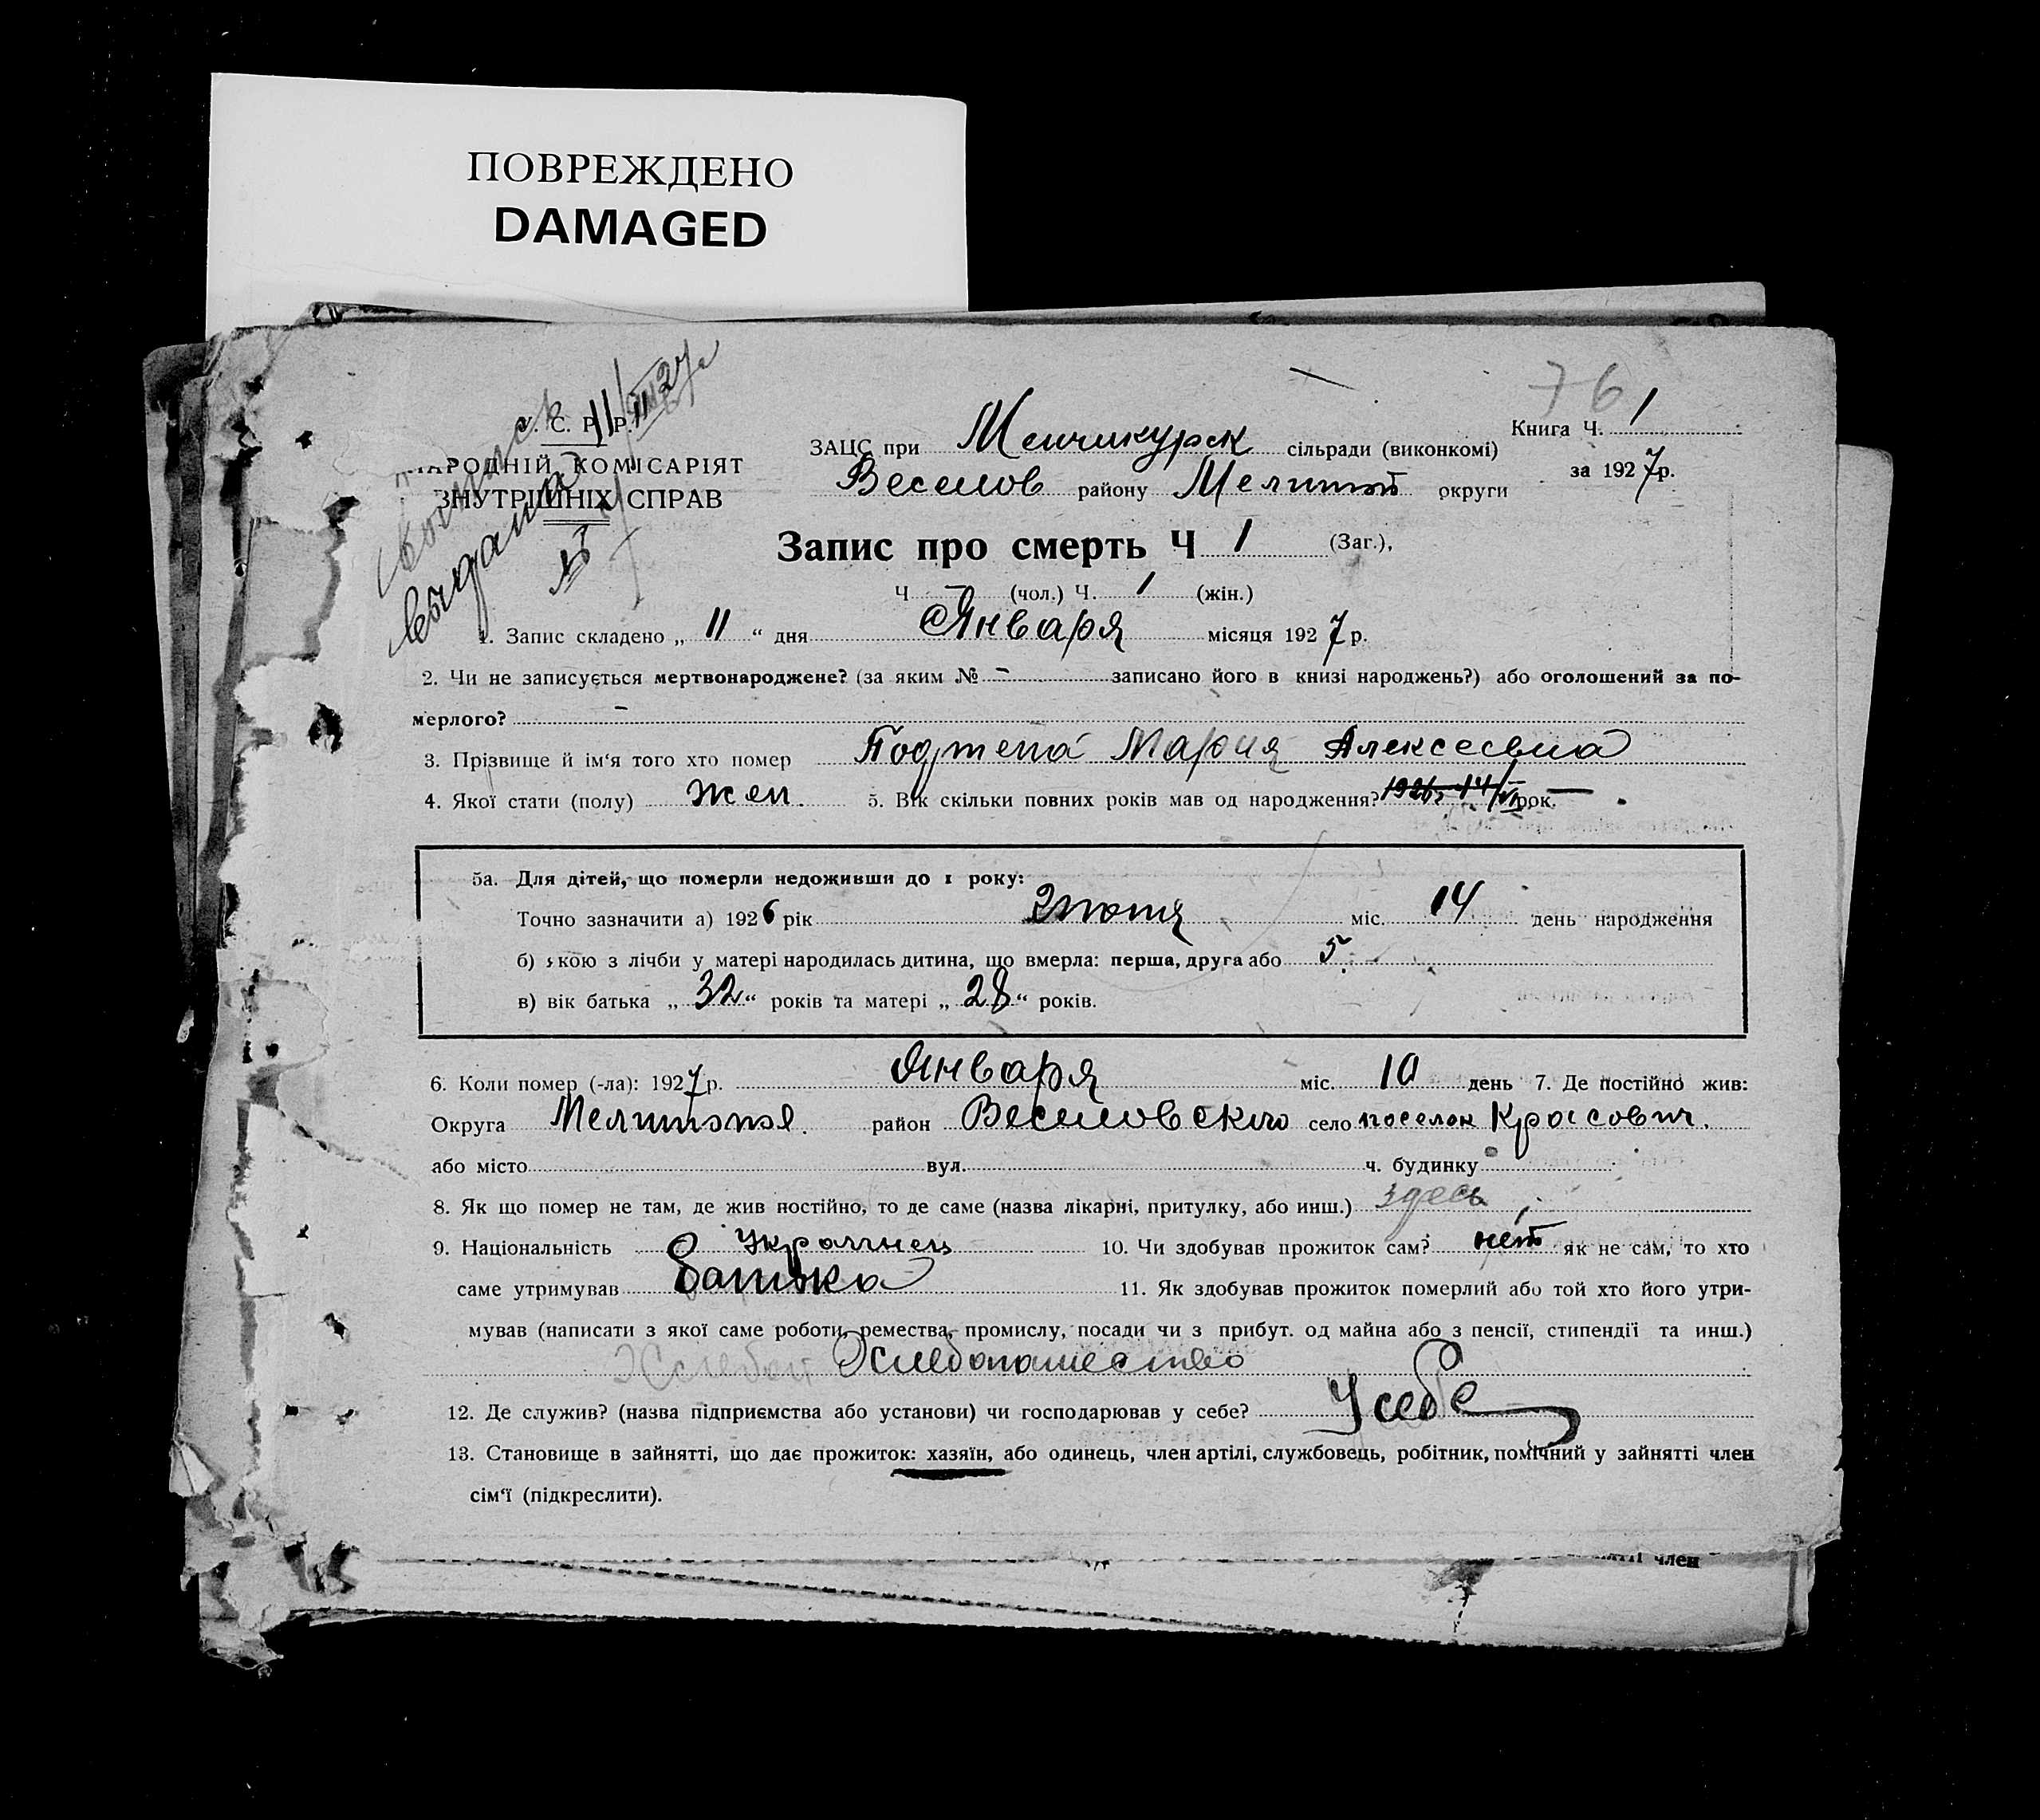 ПОВРЕЖДЕНО
DAMAGED
76
С. Р. Р.
НАРОДНІЙ КОМІСАРІЯТ
ВНУТРІШНІХ СПРАВ
выдана
ЗАЦС при Менчикурск сільради (виконкомі)
Книга Ч. 1
Веселов району Мелитоп округи
за 1927 р.
Запис про смерть Ч 1 (Заг.),
Ч — (чол.) Ч. 1 (жін.)
1. Запис складено „ 11 “ дня Января місяця 1927 р.
2. Чи не записується мертвонароджене? (за яким № - записано його в книзі народжень?) або оголошений за по-
мерлого? -
3. Прізвище й ім‘я того хто помер Мария Алексеевна
4. Якої стати (полу) жен. 5. Вік скільки повних років мав од народження? 1926 г 14/VI рок. —
5а. Для дітей, що померли недоживши до 1 року:
Точно зазначити а) 1926 рік міс. 14 день народження
б) якою з лічби у матері народилась дитина, що вмерла: перша, друга або 5
в) вік батька „ 32 “ років та матері „ 28 “ років.
6. Коли помер (-ла): 1927 р. Января міс. 10 день 7. Де постійно жив:
Округа Мелитопол. район Веселовского село поселок
або місто вул. ч. будинку
8. Як що помер не там, де жив постійно, то де саме (назва лікарні, притулку, або инш.) здесь
9. Національність Украинец 10. Чи здобував прожиток сам? нет як не сам, то хто
саме утримував батька 11. Як здобував прожиток померлий або той хто його утри-
мував (написати з якої саме роботи, ремества, промислу, посади чи з прибут. од майна або з пенсії, стипендії та инш.)
Хлебопашество
12. Де служив? (назва підприємства або установи) чи господарював у себе? У себе
13. Становище в зайнятті, що дає прожиток: хазяїн, або одинець, член артілі, службовець, робітник, помічний у зайнятті член
сім‘ї (підкреслити).
член